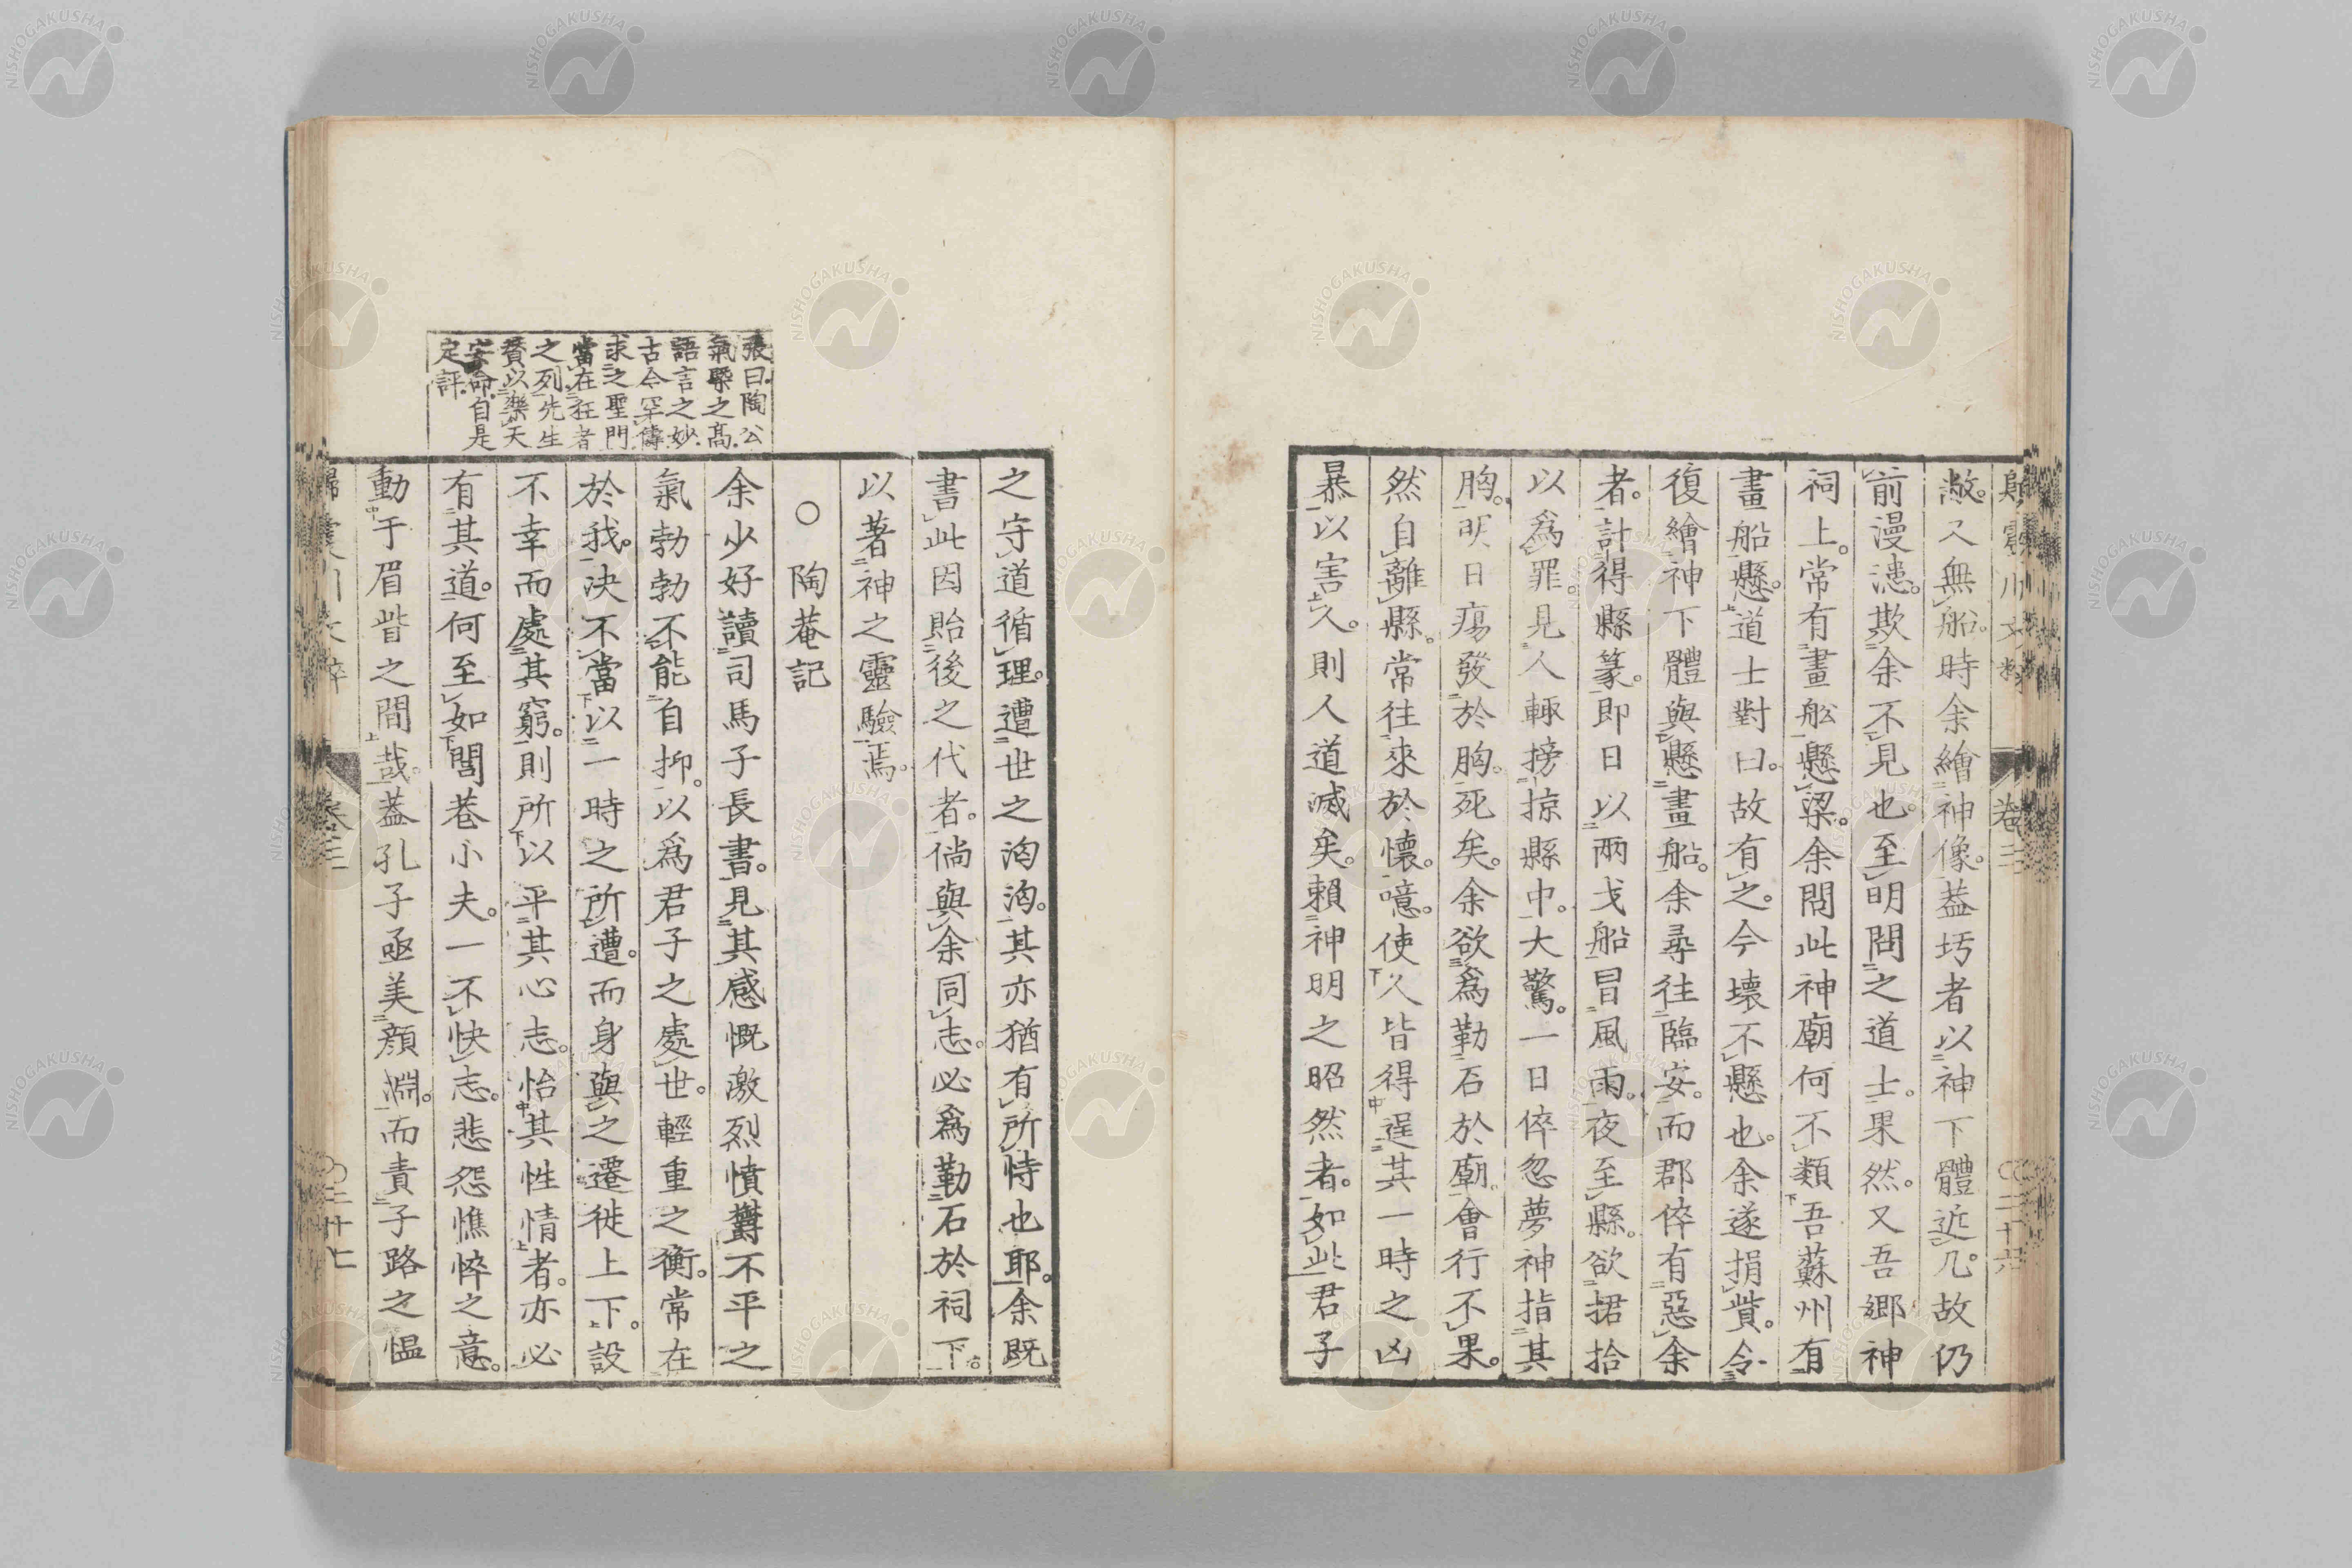 敝。又無船。時余繪神像。蓋圬者以神下體近几。故仍
前漫漶。欺余不見也。至明問之道士。果然。又吾鄉神
祠上。常有畫船懸梁。余問此神廟何不類吾蘇州有
畫船懸。道士對曰。故有之。今壞不懸也。余遂捐貲。令
復繪神下體與懸畫船。余尋往臨安。而郡倅有惡余
者。計得縣篆。即日以兩戈船冒風雨。夜至縣。欲捃拾
以為罪。見人輙搒掠縣中。大驚。一日倅忽夢神指其
胸。明日瘍發於胸。死矣。余欲為勒石於廟。會行不果。
然自離縣。常往來於懷。噫。使人皆得逞其一時之凶
暴以害人。則人道滅矣。賴神明之昭然者。如此君子
卷三
之守道循理。遭世之洶洶。其亦猶有所恃也耶。余既
書此因貽後之代者。倘與余同志。必為勒石於祠下。
以著神之靈驗焉。
○ 陶菴記
余少好讀司馬子長書。見其感慨激烈憤懟不平之
氣勃勃不能自抑。以為君子之處世。輕重之衡。常在
於我。決不當以一時之所遭。而身與之遷徙上下。設
不幸而處其窮。則所以平其心志。怡其性情者。亦必
有其道。何至如閭巷小夫。一不快志。悲怨憔悴之意。
動于眉眥之間哉。蓋孔子亟美顏淵。而責子路之慍
張曰。陶公
氣槩之高。
語言之妙。
古今罕儔
求之聖門
當在狂者
之列。先生
贊以樂天
安命。自是
定評。
卷三
二十七
NISHOGAKUSHA